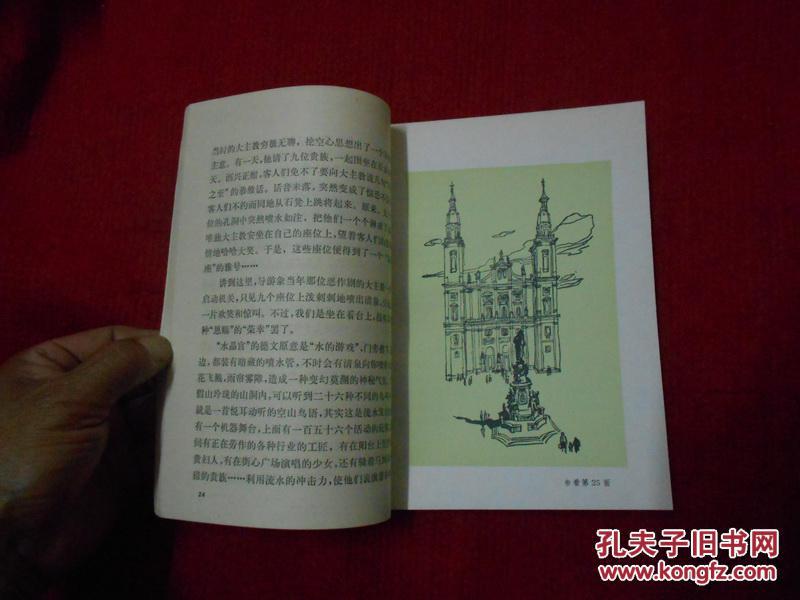 当时的大主教穷极无聊，挖空心思想出了一个
主意。有一天，他请了九位贵族，一起围坐在
天。酒兴正酣，客人们免不了要向大主教说几句
之至”的恭维话。话音未落，突然变成了惊恐不
客人们不约而同地从石凳上跳将起来。原来，
位的孔洞中突然喷水如注，把他们一个个淋
唯独大主教安坐在自己的座位上，望着客人们
情地哈哈大笑。于是，这些座位便得到了一个
座”的雅号……
讲到这里，导游象当年那位恶作剧的大主教一
启动机关，只见九个座位上泼剌剌地喷出清泉，
一片欢笑和惊叫。不过，我们是坐在看台上，
种“恩赐”的“荣幸”罢了。
“水晶宫”的德文原意是“水的游戏”，门旁
边，都装有暗藏的喷水管，不时会有清泉向你喷
花飞溅，雨帘雾障，造成一种变幻莫测的神秘气氛。
假山玲珑的山洞内，可以听到二十六种不同的鸟
就是一首悦耳动听的空山鸟语，其实这是流水发
有一个机器舞台，上面有一百五十六个活动的玩
间有正在劳作的各种行业的工匠，有在阳台上
贵妇人，有在街心广场演唱的少女，还有骑着马
猎的贵族……利用流水的冲击力，使他们表演着
24
参看第25面
孔夫子旧书网
www.kongfz.com